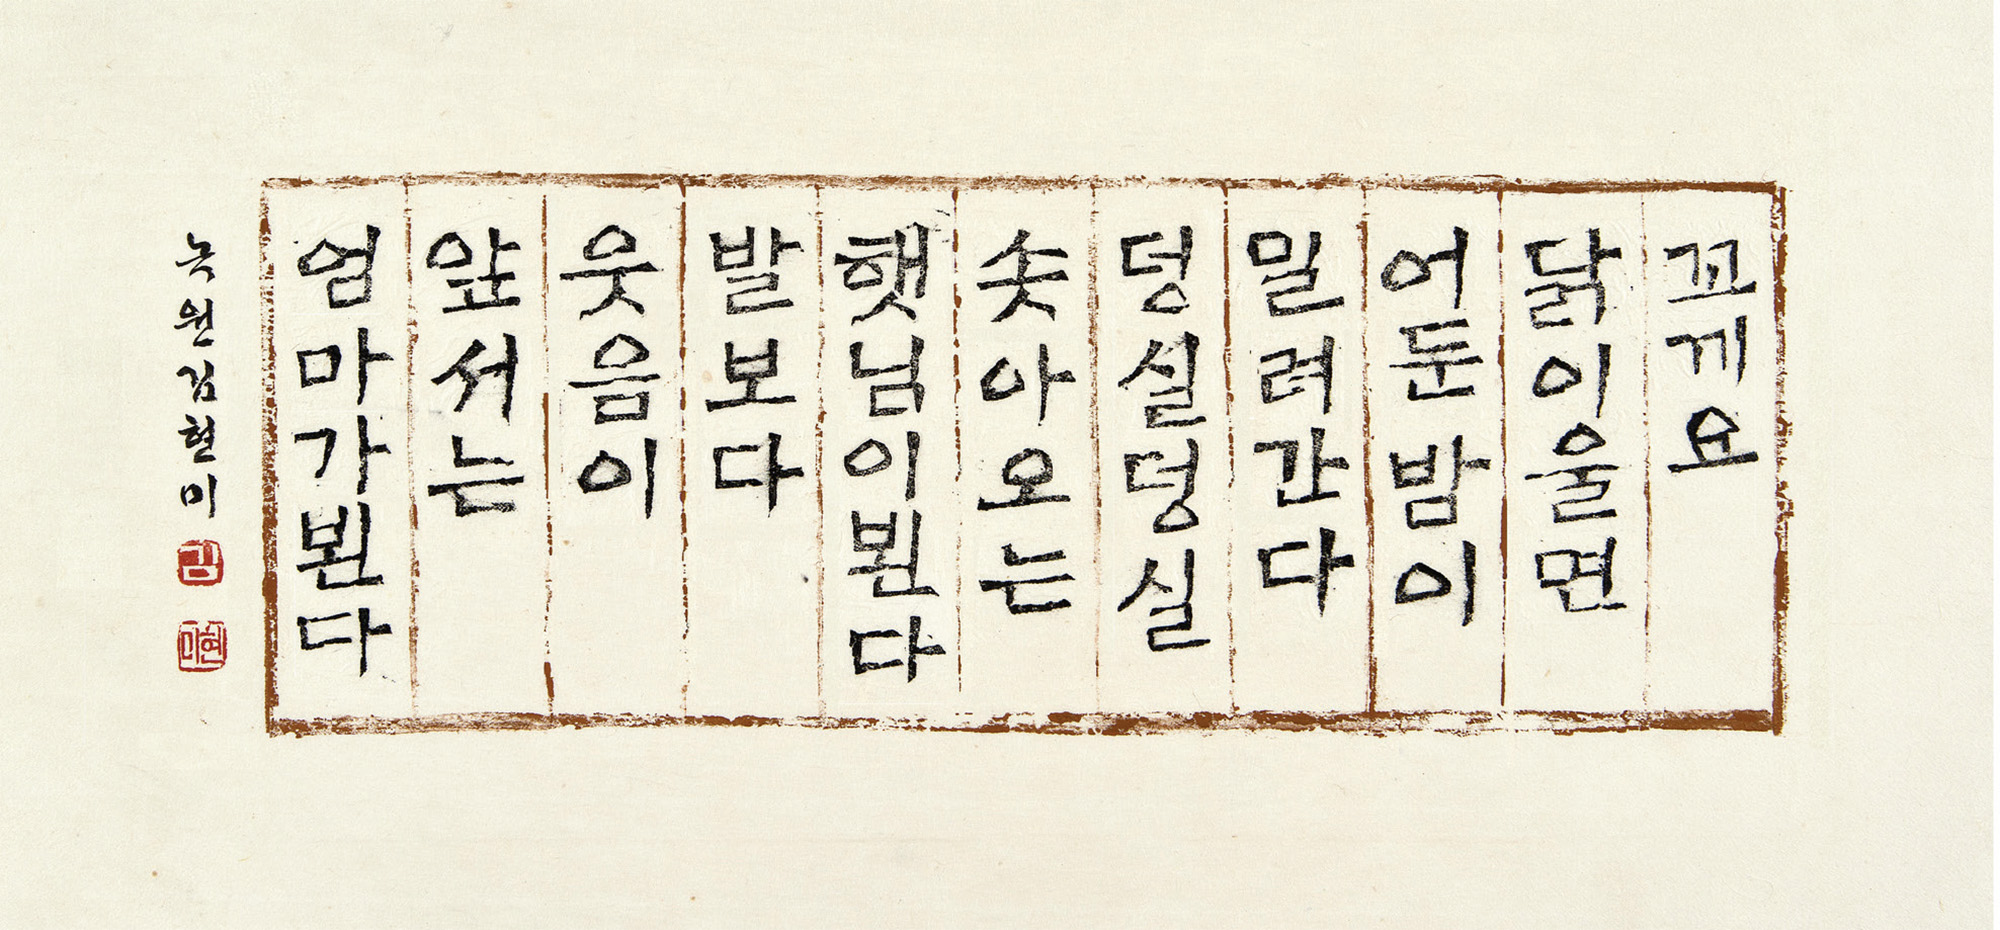 꼬께요
닭이울면
어둔밤이
밀려간다
덩실덩실
솟아오는
햇님이뵌다
발보다
웃음이
앞서는
엄마가뵌다
녹원김현미
김
현미